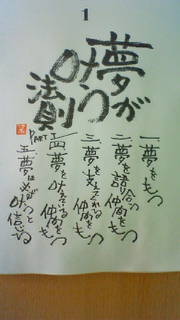 1
夢が
叶う
法則
PART
一、夢をもつ
二、夢を語り合う
仲間をもつ
三、夢を支えてくれる
仲間をもつ
四、夢を叶えている
仲間をもつ
五、夢は必ず
叶うと信じる